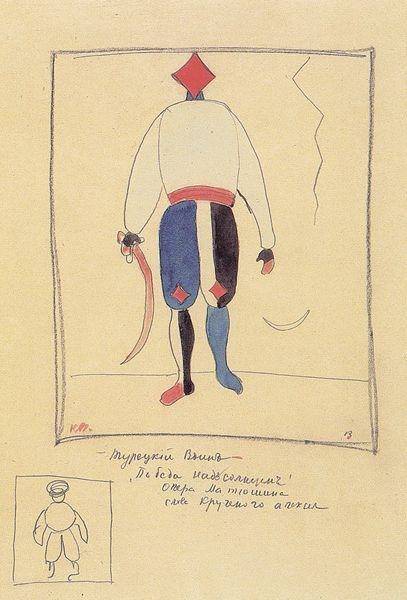 К.М.
13
— Турецкій Воинъ —
„Победа надъ солнцемъ"
Опера Матюшина
слова Крученого